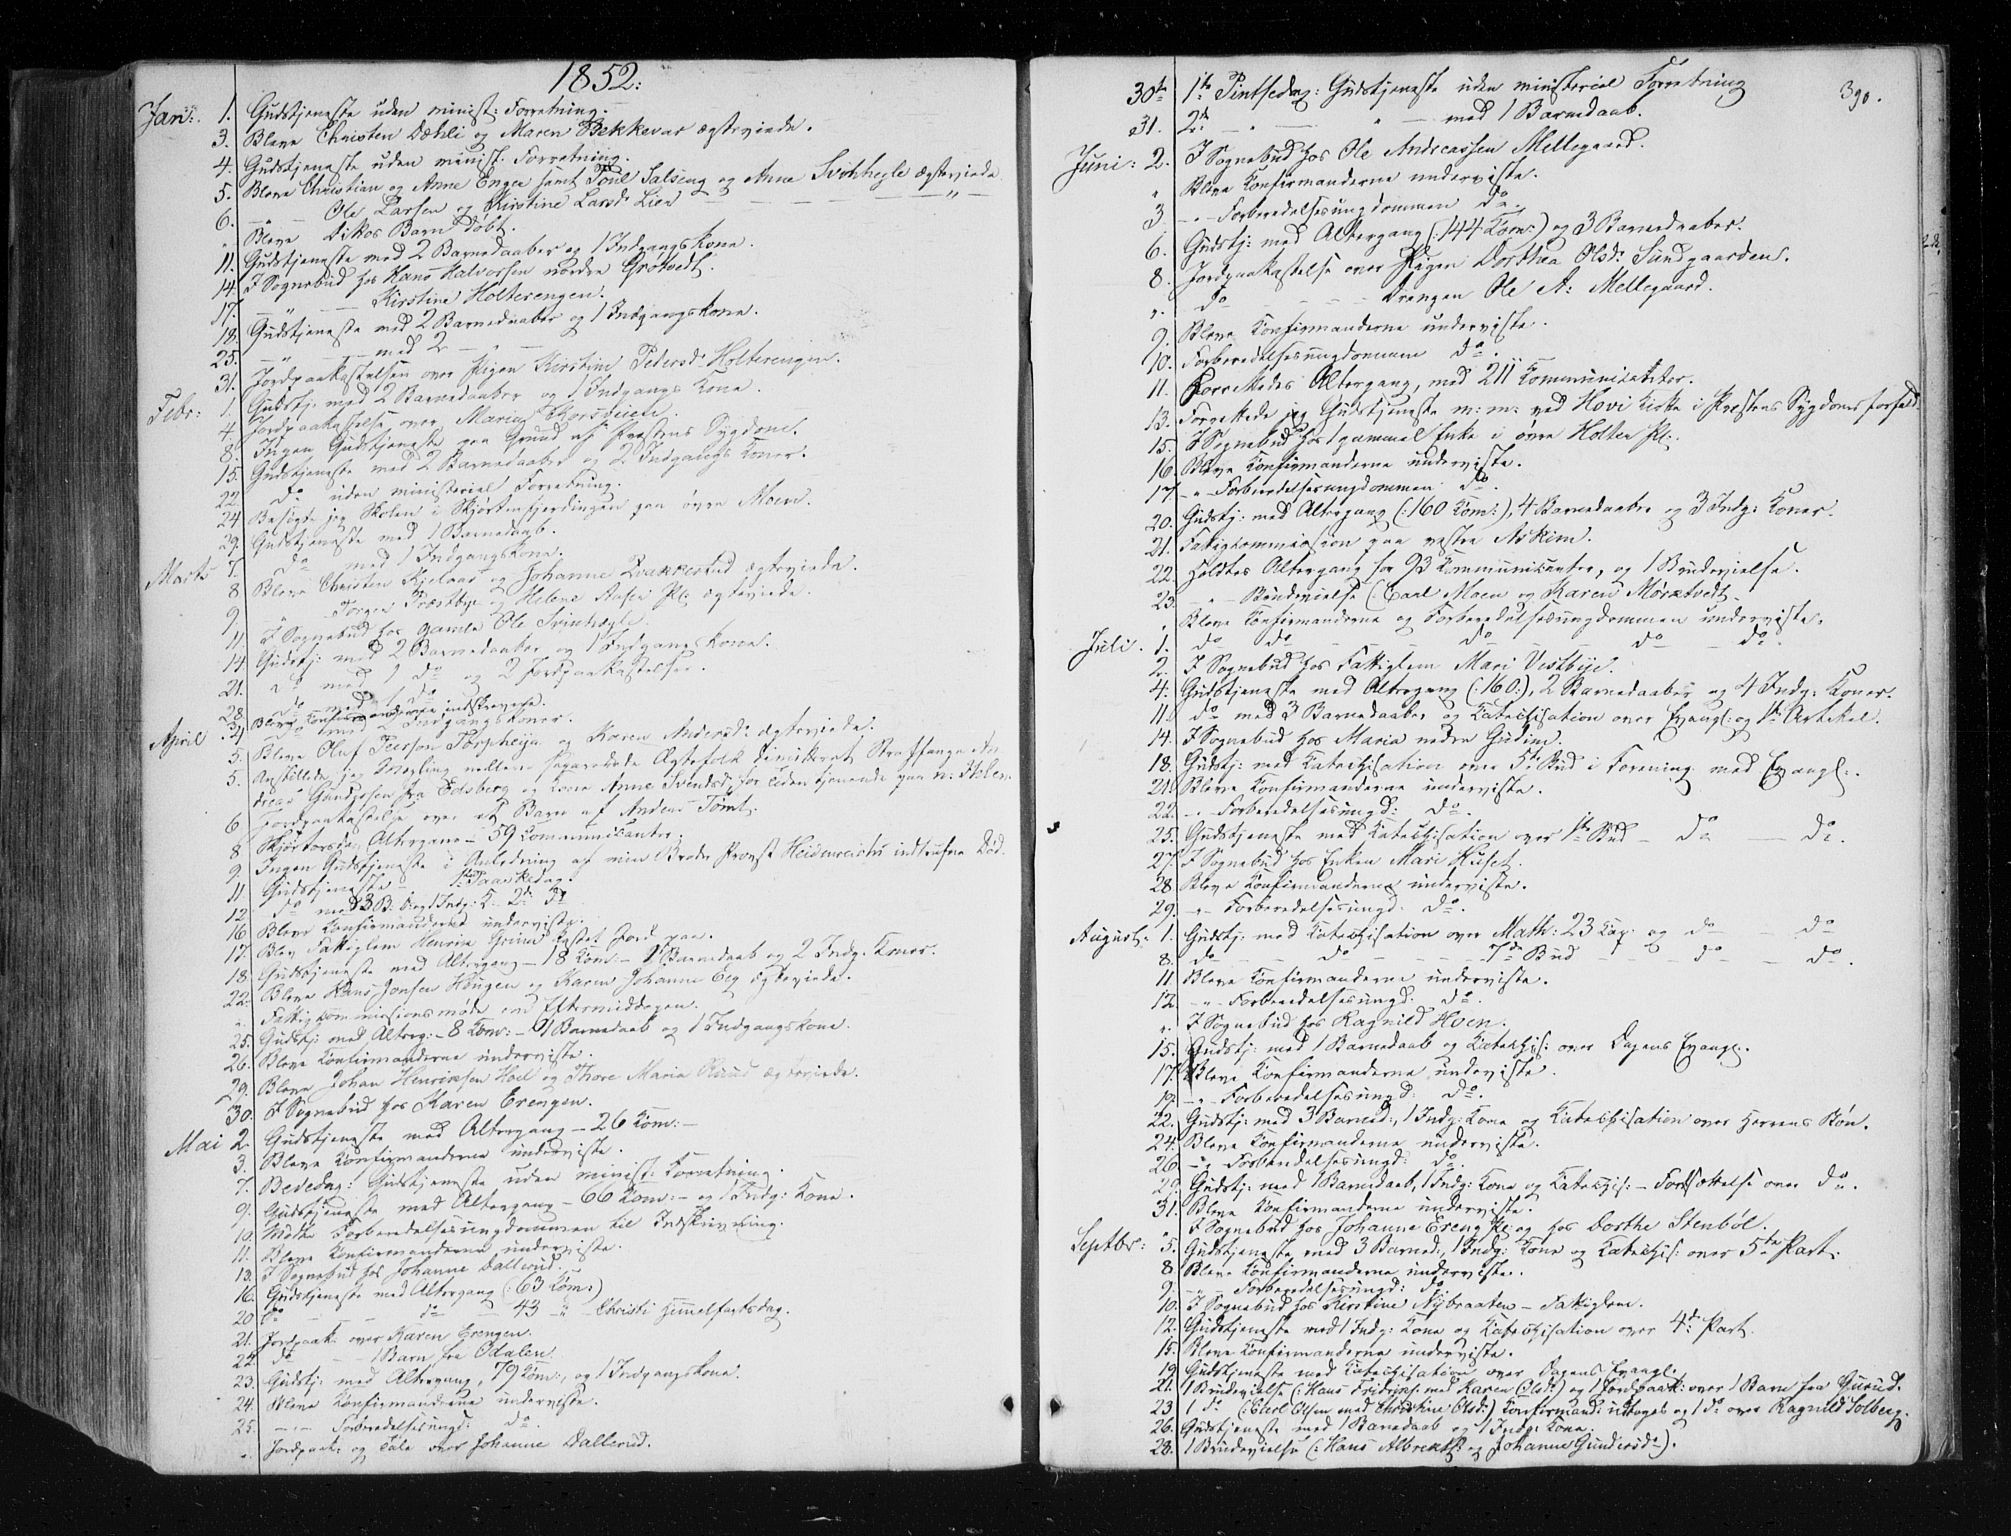 1852.
Jan: 1. Gudstjeneste uden minist: Forretning.
3. Bleve Christen Dæhli og Maren Bekkevar ægteviede.
4. Gudstjeneste uden minist. Forretning.
5. Bleve Christian og Anne Enger samt Poul Salseng og Anne ægteviede
6. – " – Ole Larsen og Kirstine Larsd: Lien – – – " –
" Bleve Barn døbt.
11. Gudstjeneste med 2 Barnedaaber og 1 Indgangskone.
14. I Sognebud hos Hans Halvorsen nordre Grøtvedt.
17. – " – Kirstine Holterengen.
18. Gudstjeneste med 2 Barnedaaber og 1 Indgangskone.
25. – " – med 2 – " –
31. Jordpaakastelse over Pigen Kirstine Pedersd: Holterengen.
Febr: 1. Gudstj. med 2 Barnedaaber og 1 Indgangs Kone.
4. Jordpaakastelse over Maria Korsveien.
8. Ingen Gudstjeneste paa Grund af Præstens Sygdom.
15. Gudstjeneste med 2 Barnedaaber og 2 Indgangs Koner.
22. do uden ministerial Forretning.
24 Besøgte jeg Skolen i Skjørtenfjerdingen paa øvre Moen.
29. Gudstjeneste med 1 Barnedaab.
Marts 7. do med 1 Indgangskone.
8 Bleve Christen Kjelaas og Johanne Kvakkestad ægteviede.
9 – " – Jørgen Præstbye og Helene Aasen Pl: ægteviede.
11. I Sognebud hos gamle Ole Svinhegle.
14 Gudstj: med 2 Barnedaaber og 1 Indgangskone.
21. do med 1 do og 2 Jordpaakastelser.
28. do med 1 do
31 Bleve Konfirmanderne indskrevne.
April Indgangskoner.
5. Bleve Oluf Peerson Torpheija og Karen Andersd: ægteviede.
5. Anstillede jeg Mægling mellem separerede Ægtefolk dimitteret Straffange An-
dreas Gundersen fra Edsberg og Kone Anne Svendsd:, for Tiden tjenende paa n: Skolen.
6 Jordpaakastelse over et Barn af Anders Tømt.
8 Skjærtorsd: Altergang – 59 Communikanter.
9 Ingen Gudstjeneste i Anledning af min Broder Provst Heidenreichs indtrufne Død.
11. Gudstjeneste – 1te Paaskedag.
12. do med 3 B: D: og 1 Indg: K – 2den do
16 Bleve Konfirmanderne underviste.
17. Blev Fattiglem Henrik Grimi kastet Jord paa.
18. Gudstjeneste med Altergang – 18 Kom: – 1 Barnedaab og 2 Indg. Koner.
22. Bleve Hans Jonsen Haugen og Karen Johanne Eeg ægteviede.
" Fattigkommissionsmøde om Eftermiddagen.
25. Gudstj: med Alterg: – 8 Kom: – 1 Barnedaab og 1 Indgangskone.
26. Bleve Konfirmanderne underviste.
29. Bleve Johan Henriksen Hoel og Thore Maria Ruud ægteviede.
30. I Sognebud hos Karen Erengen.
Mai 2. Gudstjeneste med Altergang – 26 Kom: –
3. Bleve Konfirmanderne underviste.
7. Bededag: Gudstjeneste uden minist: Forretning.
9. Gudstjeneste med Altergang – 66 Kom: – og 1 Indg: Kone.
10. Mødte Forberedelsesungdommen til Indskrivning.
11. Bleve Konfirmanderne underviste.
13. I Sognebud hos Johanne Dallerud.
16. Gudstjeneste med Altergang (: 63 Kom:)
20 do – – do – 43 " – Christi Himmelfartsdag.
21. Jordpaak: over Karen Erengen.
22 do – – 1 Barn fra Odalen.
23. Gudstj: med Altergang, 79 Kom:, og 1 Indgangskone.
24. Bleve Konfirmanderne underviste.
25. – " – Forberedelsesungd: do.
". Jordpaak: og Tale over Johanne Dallerud.
390.
30te 1te Pintsedag: Gudstjeneste uden ministeriel Forretning
31. 2den – " – med 1 Barnedaab.
Juni: 2. I Sognebud hos Ole Andreassen Mellegaard.
" Bleve Konfirmanderne underviste.
3 – " – Forberedelsesungdommen do.
6. Gudstj: med Altergang (: 144 Kom:) og 3 Barnedaaber.
8. Jordpaakastelse over Pigen Dorthea Olsd: Sundgaarden.
". do – – – Drengen Ole A: Mellegaard.
9. Bleve Konfirmanderne underviste.
10. Forberedelsesungdommen do.
11. Forrettedes Altergang, med 211 Kommunikanter.
13. Forrettede jeg Gudstjeneste m: m: ved Hovi Kirke i Præstens Sygdomsforfald.
15. I Sognebud hos 1 gammel Enke i øvre Holter Pl:.
16. Bleve Konfirmanderne underviste.
17. – " – Forberedelsesungdommen do.
20. Gudstj: med Altergang (: 160 Kom:), 4 Barnedaaber og 3 Indg: Koner.
21. Fattigkommission paa vestre Askim.
22. Holdtes Altergang for 93 Kommunikanter, og 1 Brudevielse.
23. – " – Brudevielse (: Carl Moen og Karen Mørktvedt.
" Bleve Konfirmanderne og Forberedelsesungdommen underviste.
Juli. 1. do do – do – do – do.
2. I Sognebud hos Fattiglem Mari Vestbye.
4. Gudstjeneste med Altergang (: 160:), 2 Barnedaaber og 4 Indg: Koner.
11. do med 3 Barnedaaber og Katechisation over Evangl: og 1ste Artikel.
14. I Sognebud hos Maria nedre Gudim.
18. Gudstj: med Katechisation over 5te Bud i Forening med Evangl:.
21. Bleve Konfirmanderne underviste.
22. – " – Forberedelsesungd: do.
25. Gudstjeneste med Katechisation over 1ste Bud – do – do.
27. I Sognebud hos Enken Mari Huset.
28. Bleve Konfirmanderne underviste.
29. – " – Forberedelsesungd: do.
August: 1. Gudstj: med Katechisation over Math: 23 Kap: og do – do
8. do – – do – – 7de Bud – – do – do.
11. Bleve Konfirmanderne underviste.
12 – " – Forberedelsesungd: do.
". I Sognebud hos Ragnild Hven.
15. Gudstj: med 1 Barnedaab og Katechis: over Dagens Evangl:.
17. Bleve Konfirmanderne underviste.
19. – " – Forberedelsesungd: do.
22. Gudstj: med 3 Barned:, 1 Indg: Kone og Katechisation over Herrens Bøn.
24. Bleve Konfirmanderne underviste.
26. – " – Forberedelsesungd: do.
29. Gudstj: med 1 Barnedaab, 1 Indg: Kone og Katechis: – Fortsættelse over do.
31. Bleve Konfirmanderne underviste.
" I Sognebud hos Johanne Ereng Pl: og hos Dorthe Stenbøl.
Septbr: 5. Gudstjeneste med 3 Barned:, 1 Indg: Kone og Katechis: over 5te Part.
8. Bleve Konfirmanderne underviste.
9. – " – Forberedelsesungd: do
10. I Sognebud hos Kirstine Nybraaten – Fattiglem.
12. Gudstjeneste med 1 Indg: Kone og Katechisation over 4de Part.
15. Bleve Konfirmanderne underviste.
19. Gudstjeneste med Katechisation over Dagens Evangl:
21. 1 Brudevielse (: Hans Fridriks: med Karen Olsd:) og 1 Jordpaak: over 1 Barn fra Gurud.
23 1 do (: Carl Olsen med Christine Olsd:) Konfirmand: udtoges og 1 do over Ragnild Solberg.
26. Gudstjeneste med 1 Barnedaab og 1 Indg: Kone.
28. 1 Brudevielse (: Hans Albrekts: og Johanne Gundersd:).